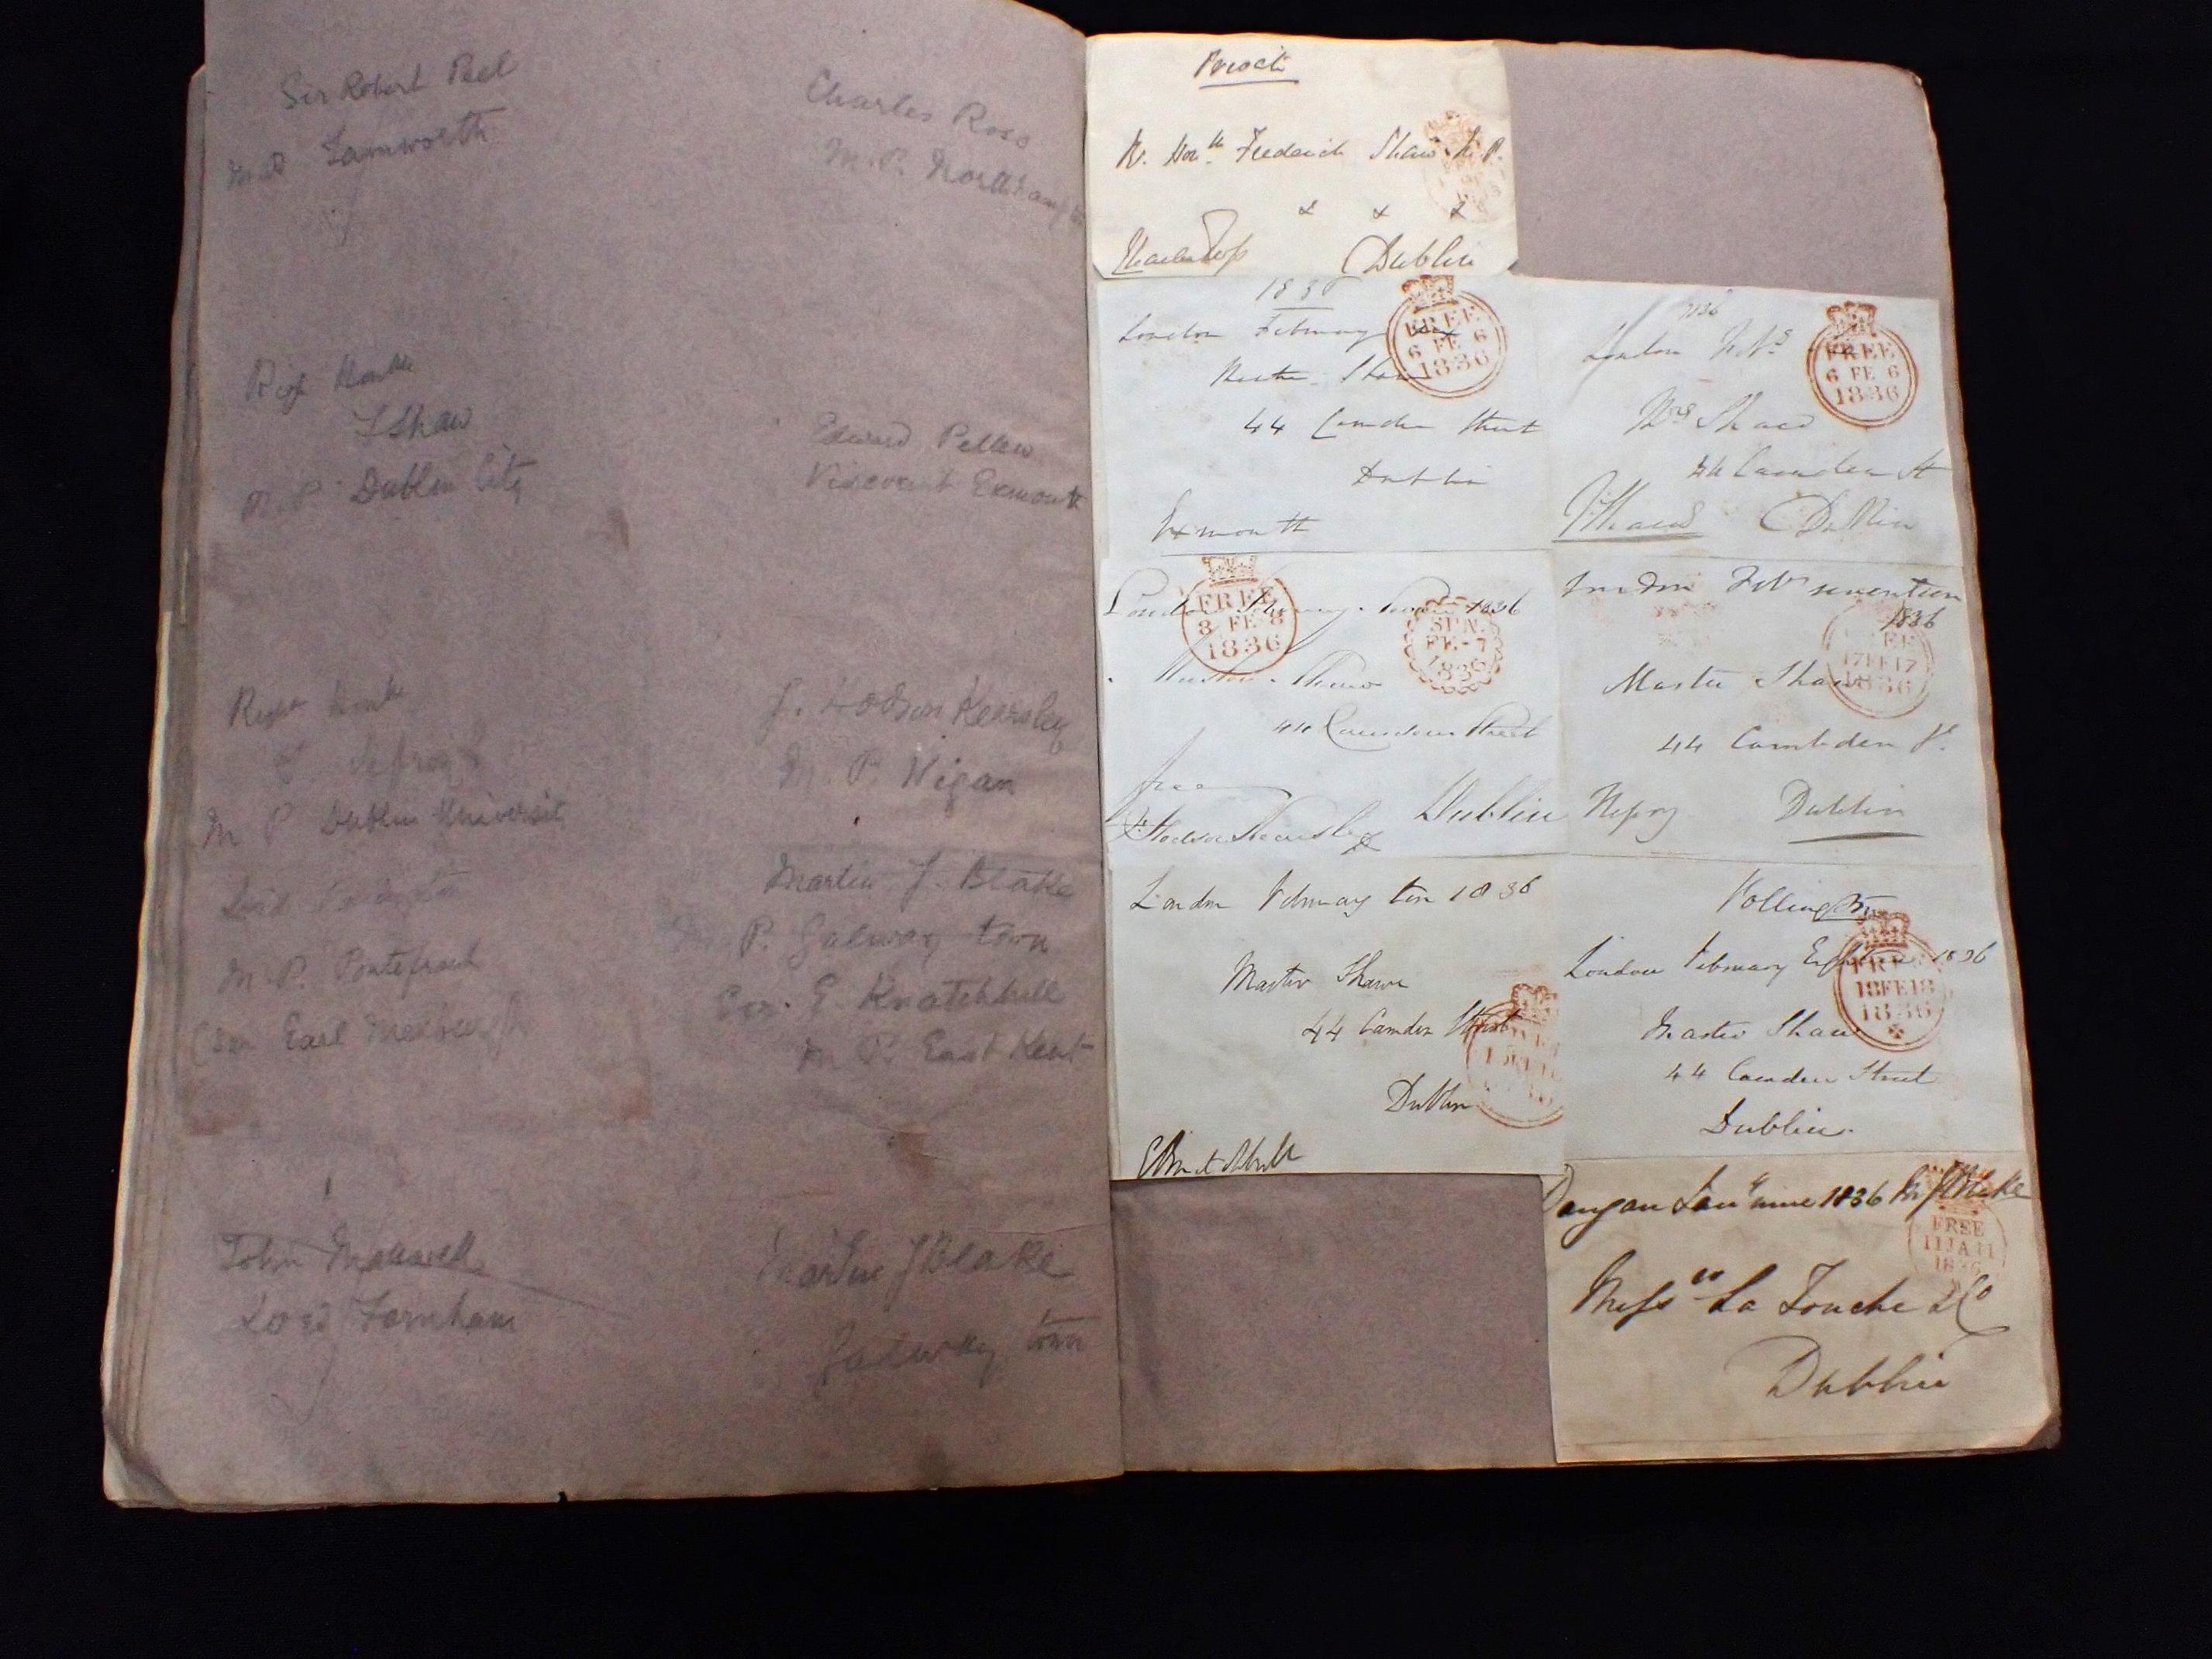 Sir Robert Peel
M P Tamworth
Charles Ross
M. P. Northampton
F Shaw
M. P. Dublin City
Edward Pellew
Viscount Exmouth
Right Honble
M P Dublin University
J. Hodson Kearsley
M. P. Wigan
Lord
M. P. Pontefract
Earl
Martin J. Blake
M P. Galway town
Sir. E Knatchbull
M P. East Kent
John Maxwell
Lord Farnham
Martin J Blake
Galway town
Private
Rt. Honble Frederick Shaw M. P.
& & &
Charles Ross Dublin
1836
London February six
FREE
6 FE 6
1836
Master Shaw
44 Camden Street
Dublin
Exmouth
1836
London
FREE
6 FE 6
1836
Mrs Shaw
44 Camden St
FShaw Dublin
London 1836
FREE
8 FE 8
1836
FE-7
1836
Master Shaw
44 Camden Street
free
J Hodson Kearsley Dublin
London Feby seventeen
1836
17FE17
1836
Master Shaw
44 Cambden St.
Dublin
London February ten 1836
Master Shaw
44 Camden Street
Dublin
EKnatchbull
Pollington
London February Eighteen 1836
FREE
18FE18
1836
Master Shaw
44 Camden Street
Dublin.
Dangan Jany nine 1836 M J Blake
FREE
11JA11
1836
Messrs La Touche & Co
Dublin